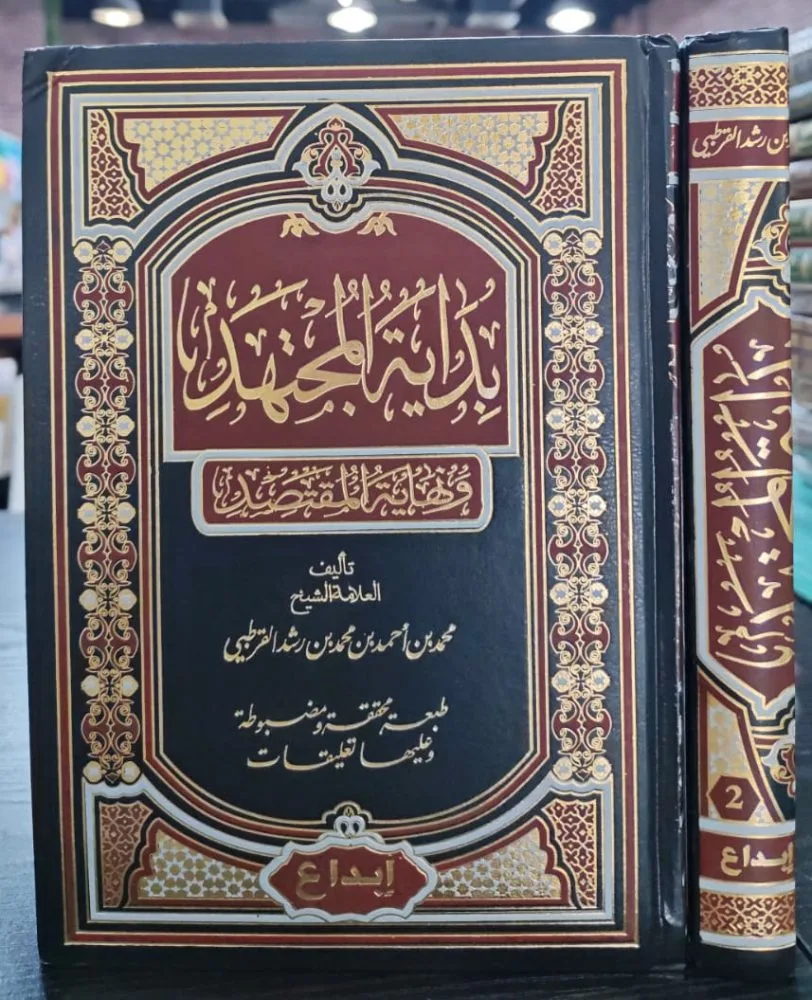 بِدَايَةُ المُجْتَهِدِ
وَنِهَايَةُ المُقْتَصِدِ
تأليف
العلامة الشيخ
محمد بن أحمد بن محمد بن رشد القرطبي
طبعة محققة ومضبوطة
وعليها تعليقات
إبداع
بن رشد القرطبي
2
إبداع